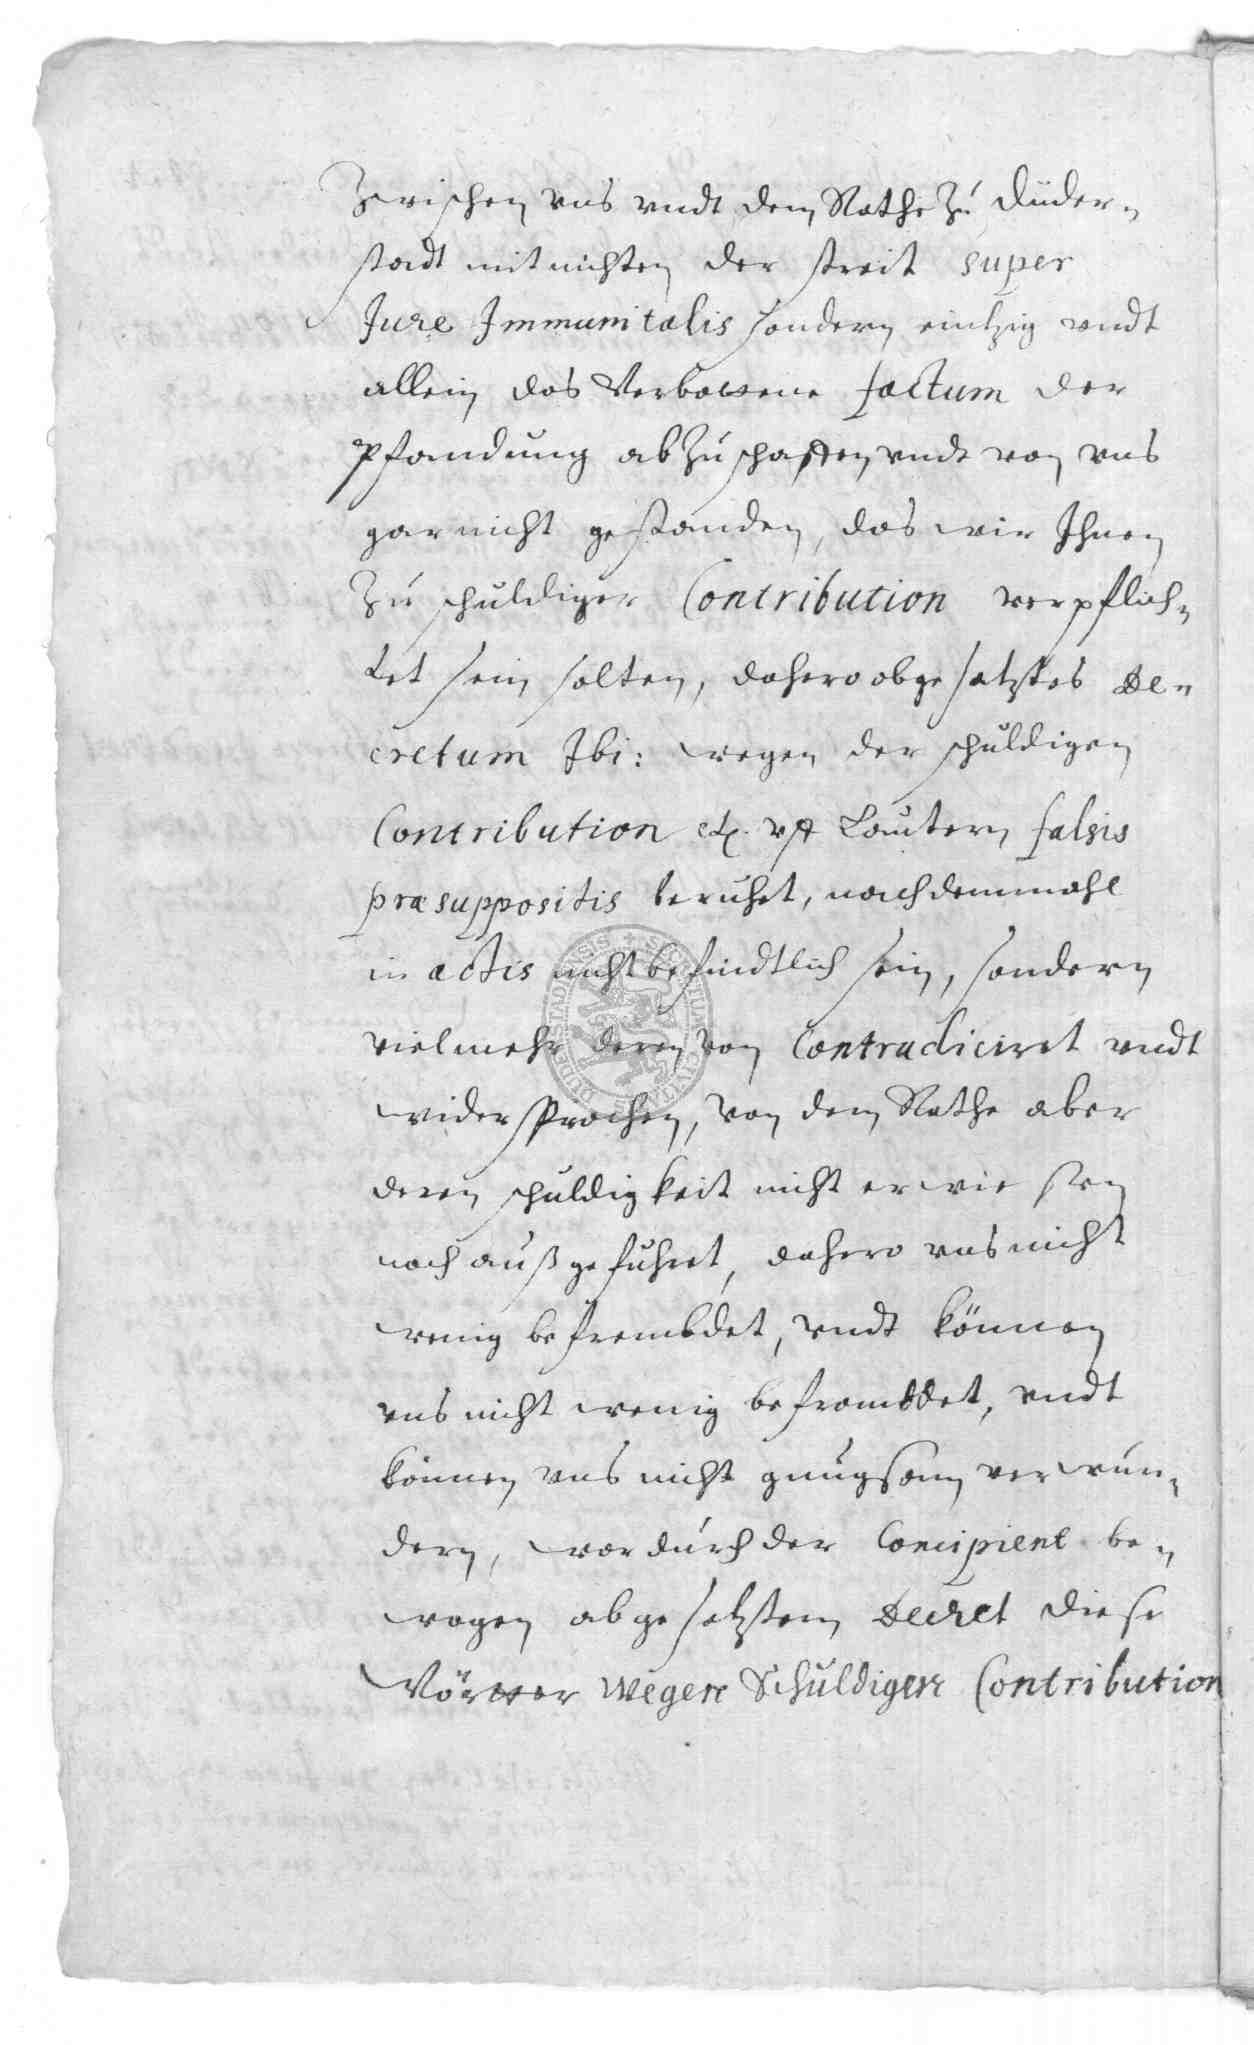 Zwischen vns vndt dem Rathe zu Düder-
stadt mit nichten der streit super
Jure Immunitatis sondern eintzig vndt
allein das Verbottene factum der
Pfandung abzuschaffen vndt von vns
gar nicht gestanden, das wir Ihnen
Zu schuldiger Contribution verpflich-
tet sein solten, dahero obgesatztes De-
cretum Ibi: wegen der schuldigen
Contribution etc. vff Lautern falsis
præsuppositis beruhet, nachdemmahl
in actis nicht befindtlich sein, sondern
vielmehr deren von Contradiciret vndt
widersprochen, von dem Rathe aber
deren schuldigkeit nicht erwiesen
noch außgefuhret, dahero vns nicht
wenig befrembdet, vndt können
vns nicht wenig befrembdet, vndt
können vns nicht gnugsam verwun-
dern, wordurch der Concipient be-
wogen abgesetztem Decret diese
Wörter wegen Schuldigen Contribution
DUDERSTADIENSIS SECRETUM CIVITATIS